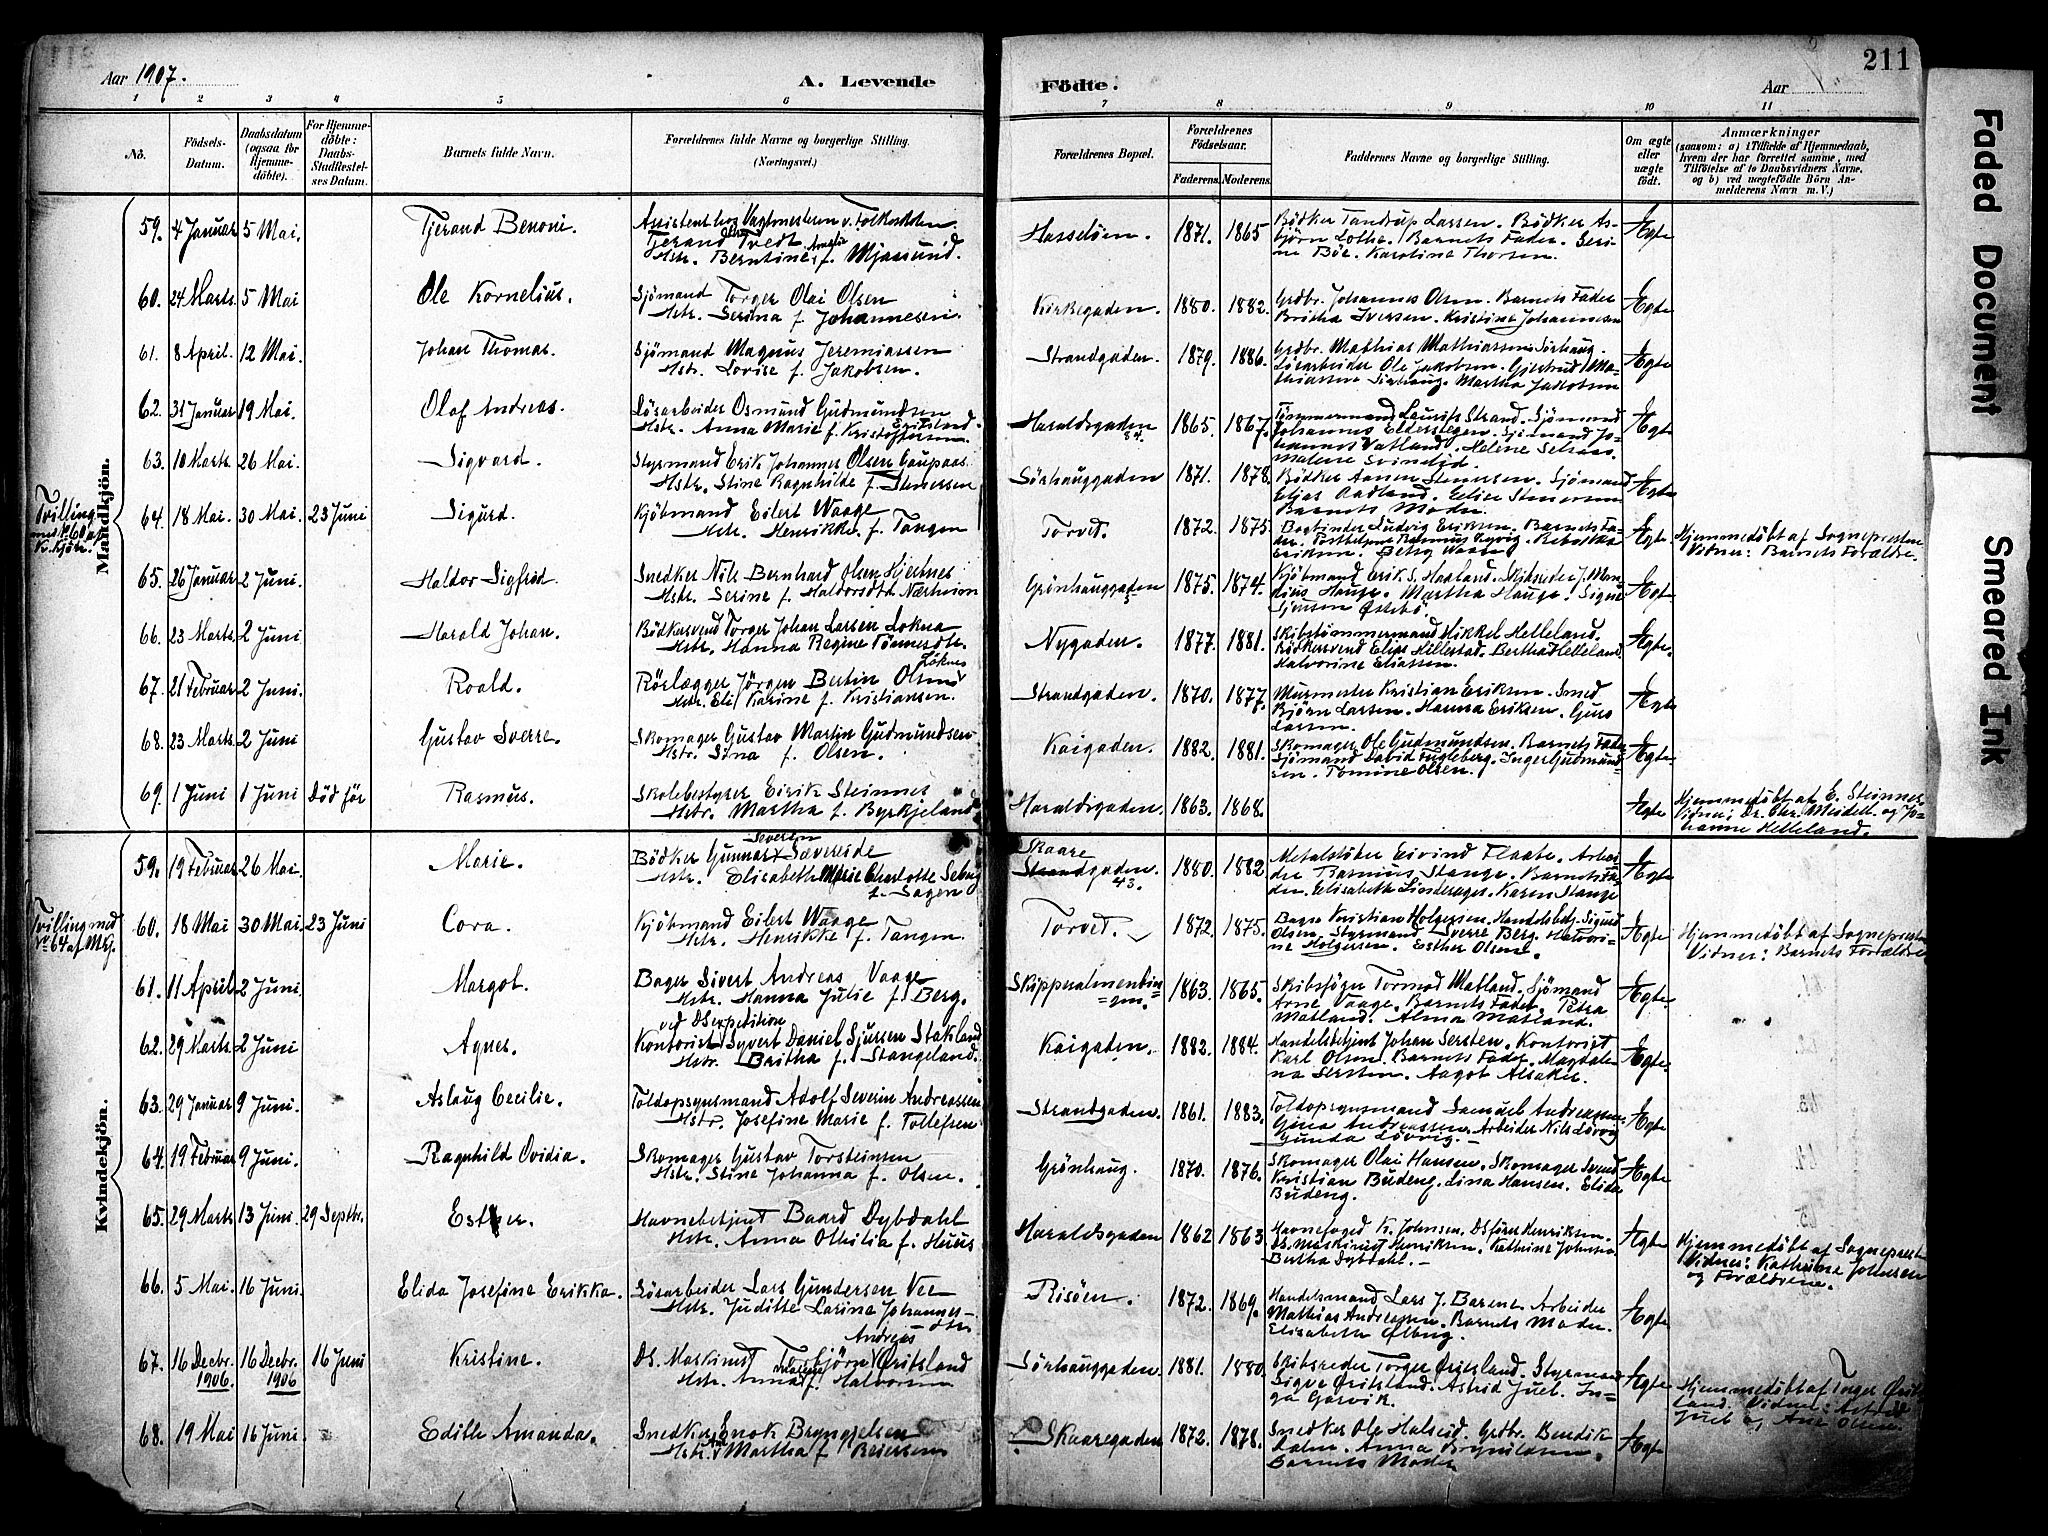 Aar 1907.
A. Levende
Födte.
Aar
211
Faded Document
Smeared Ink
1 2 3 4 5 6 7 8 9 10 11
No.
Födsels-Datum.
Daabsdatum (ogsaa for Hjemmedöbte).
For Hjemmedöbte: Daabs-Stadfestelses Datum.
Barnets fulde Navn.
Forældrenes fulde Navne og borgerlige Stilling. (Næringsvei.)
Forældrenes Bopæl.
Forældrenes Födselsaar.
Faderens. Moderens.
Faddernes Navne og borgerlige Stilling.
Om ægte eller uægte födt.
Anmærkninger
(saasom: a) i Tilfælde af Hjemmedaab, hvem der har forrettet samme, med Tilföielse af to Daabsvidners Navne, og b) ved uægtefödte Börn Anmelderens Navn m. V.)
Mandkjön.
59. 4 Januar 5 Mai. Tjerand Benoni. Assistent hos Vagtmesteren v. Folkeskolen Tjerand Tvedt Hstr. Berntine f. Mjaasund. Hasseløen. 1871. 1865 Bödker Tandrup Larsen. Bödker Asbjörn Lothe. Barnets Fader. Serine Böe. Karoline Thorsen. Ægte
60. 24 Marts. 5 Mai Ole Kornelius. Sjömand Torger Olai Olsen Hstr. Serina f. Johannesen. Kirkegaden. 1880. 1882. Grdbr. Johannes Olsen. Barnets Fader Britha Iversen. Kristine Johannesen Ægte
61. 8 April. 12 Mai. Johan Thomas. Sjömand Magnus Jeremiassen Hstr. Lovise f. Jakobsen. Strandgaden. 1879. 1886. Grdbr. Mathias Mathiassen Sörhaug. Lösarbeider Ole Jakobsen. Gjertrud Mathiassen Sörhaug. Martha Jakobsen Ægte
62. 31 Januar 19 Mai. Olaf Andreas. Lösarbeider Osmund Gudmundsen Hstr. Anna Marie f. Kristoffersen Haraldsgaden 84. 1865. 1867. Tömmermand Laurits Strand. Sjömand Johannes Eldersvegen. Sjömand Johannes Vatland. Helene Selsaas. Malene Svindöd. Ægte
63. 10 Marts. 26 Mai. Sigvard. Styrmand Erik Johannes Olsen Gaupaas. Hstr. Stine Ragnhilde f. Stenersen Sörhauggaden 1871. 1878. Bödker Aanen Stenersen. Sjömand Elias Aadland. Eelise Stenersen Barnets Moder. Ægte
Tvilling med N. 60 af K.kjön.
64. 18 Mai. 30 Mai. 23 Juni Sigurd. Kjöbmand Eilert Waage Hstr. Henrikke. f. Tangen Torvet. 1872. 1875. Bogbinder Ludvig Eriksen. Barnets Fader. Rebekka Eriksen. Betsy Waage Ægte. Hjemmedöbt af Sognepresten Vidner: Barnets Forældre.
65. 26 Januar 2 Juni. Haldor Sigfred. Snedker Nils Bernhard Olsen Hjertnes Hstr. Serine f. Haldorsdtr Nærheim Grönhauggaden 1875. 1874. Kjöbmand Erik S. Haaland. Skibsreder J. Mandius Hauge. Martha Hauge. Signe Sjursen Østebö. Ægte.
66. 23 Marts. 2 Juni. Harald Johan. Bödkersvend Torger Johan Larsen Lokna Hstr. Hanna Regine Tönnesdtr. Nygaden. 1877. 1881. Skibstömmermand Mikkel Helleland. Bödkersvend Elias Hellestad. Bertha Helleland. Halvorine Eliassen. Ægte.
67. 21 Februar 2 Juni. Roald. Rörlægger Jörgen Bertin Olsen Hstr. Eli Karine f. Kristiansen. Strandgaden. 1870. 1877. Murmester Kristian Eriksen. Smed Björn Larsen. Hanna Eriksen. Guro Larsen. Ægte
68. 23 Marts. 2 Juni Gustav Sverre. Skomager Gustav Martin Gudmundsen Hstr. Sina f. Olsen. Kaigaden. 1882. 1881. Skomager Ole Gudmundsen. Barnets Fader Sjömand David Fugleberg. Inger Gudmundsen. Tomine Olsen. Ægte
69. 1 Juni 1 Juni Död för Rasmus. Skolebestyrer Eirik Steinnes Hstr. Martha f. Byrkjeland Haraldsgaden. 1863. 1868. Ægte Hjemmedöbt af E. Steinnes Vidner: Dr. Chr. Meidell og Johanne Helleland.
Kvindekjön.
59. 19 Februar 26 Mai. Marie. Bödker Gunnar Severin Sævereide Hstr. Elisabeth Marie Charlotte f. Sagen Skaare Strandgaden. 43. 1880. 1882. Metalstöber Eivind Flaate. Arbeider Rasmus Stange. Barnets Fader. Elisabeth Lindereger. Karen Stange Ægte
Tvilling med N. 64 af M.kj.
60. 18 Mai 30 Mai. 23 Juni Cora. Kjöbmand Eilert Waage Hstr. Henrikke f. Tangen. Torvet. 1872. 1875. Bager Kristian Holgersen. Handelsbetj. Sigurd Olsen. Styrmand Sverre Berg. Halvorine Holgersen. Esther Olsen. Ægte Hjemmedöbt af Sognepresten Vidner: Barnets Forældre
61. 11 April 2 Juni. Margot. Bager Sivert Andreas Vaage Hstr. Hanna Julie f. Berg. Skipperalmenningen. 1863. 1865. Skibsförer Tormod Matland. Sjömand Arne Vaage. Barnets Fader. Petra Matland. Alma Matland. Ægte
62. 29 Marts. 2 Juni Agnes. Kontorist ved DSexpedition Syvert Daniel Sjursen Stakland Hstr. Britha f. Stangeland. Kaigaden. 1882. 1884. Handelsbetjent Johan Sersten. Kontorist Karl Olsen. Barnets Fader. Magdalena Sersten. Aagot Alsaker. Ægte.
63. 29 Januar 9 Juni. Aslaug Cecilie. Toldopsynsmand Adolf Severin Andreassen Hstr. Josefine Marie f. Tollefsen. Strandgaden. 1861. 1883. Toldopsynsmand Samuel Andreassen. Gina Andreassen. Arbeider Nils Lövvig Gunda Lövvig. Ægte
64. 19 Februar 9 Juni. Ragnhild Ovidia. Skomager Gustav Torsteinsen Hstr. Stine Johanna f. Olsen. Grönhaug. 1870. 1876. Skomager Olai Hansen. Skomager Svend Kristian Budeng. Lina Hansen. Elida Budeng. Ægte
65. 29 Marts 13 Juni. 29 Septbr. Esther. Havnebetjent Baard Dybdahl Hstr. Anna Othilia f. Huus Haraldsgaden 1862 1863 Havnefoged K. Johnsen. DSförer Henriksen. DS. Maskinist Henriksen. Kathrine Johnsen. Bertha Dybdahl. Ægte Hjemmedöbt af Sognepresten Vidner: Kathrine Johnsen og Forældrene.
66. 5 Mai. 16 Juni. Elida Josefine Erikka. Lösarbeider Lars Gundersen Vee Hstr. Juditte Larine Johannesdtr. Risöen. 1872. 1869. Handelsmand Lars J. Barene. Arbeider Mathias Andreassen. Barnets Moder. Elisabeth Ølberg. Ægte
67. 16 Decbr. 1906. 16 Decbr. 1906 16 Juni Kristine. DS. Maskinist Torbjörn Andreas Øritsland Hstr. Anna Malene f. Halvorsen Sörhauggaden. 1881. 1880. Skibsreder Torger Øritsland. Styrmand Sigve Øritsland. Astrid Juel. Inga Garvik. Ægte Hjemmedöbt af Torger Øritsland. Vidner: Astrid Juel og Ane Olsen.
68. 19 Mai 16 Juni Edith Amanda. Snedker Enok Bryngelsen Hstr. Martha f. Skaaregaden 1872. 1878. Snedker Ole Halseid. Grdbr. Bendik Dalen. Anna Bryngelsen. Barnets Moder Ægte